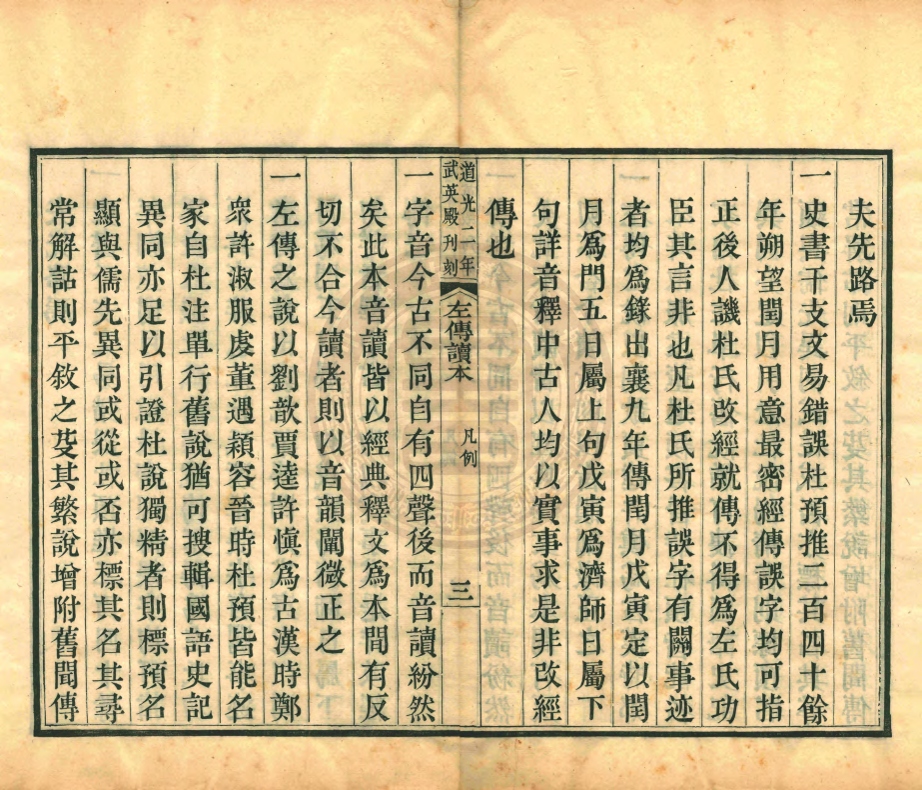 夫先路焉
一史書干支文易錯誤杜預推二百四十餘
年朔望閏月用意最密經傳誤字均可指
正後人譏杜氏改經就傳不得爲左氏功
臣其言非也凡杜氏所推誤字有關事迹
者均爲錄出襄九年傳閏月戊寅定以閏
月爲門五日屬上句戊寅爲濟師日屬下
句詳音釋中古人均以實事求是非改經
傳也
道光二年
武英殿刊刻
左傳讀本
凡例
三
一字音今古不同自有四聲後而音讀紛然
矣此本音讀皆以經典釋文爲本間有反
切不合今讀者則以音韻闡微正之
一左傳之說以劉歆賈逵許愼爲古漢時鄭
衆許淑服虔董遇穎容晉時杜預皆能名
家自杜注單行舊說猶可搜輯國語史記
異同亦足以引證杜說獨精者則標預名
顯與儒先異同或從或否亦標其名其尋
常解詁則平敘之芟其繁說增附舊聞傳